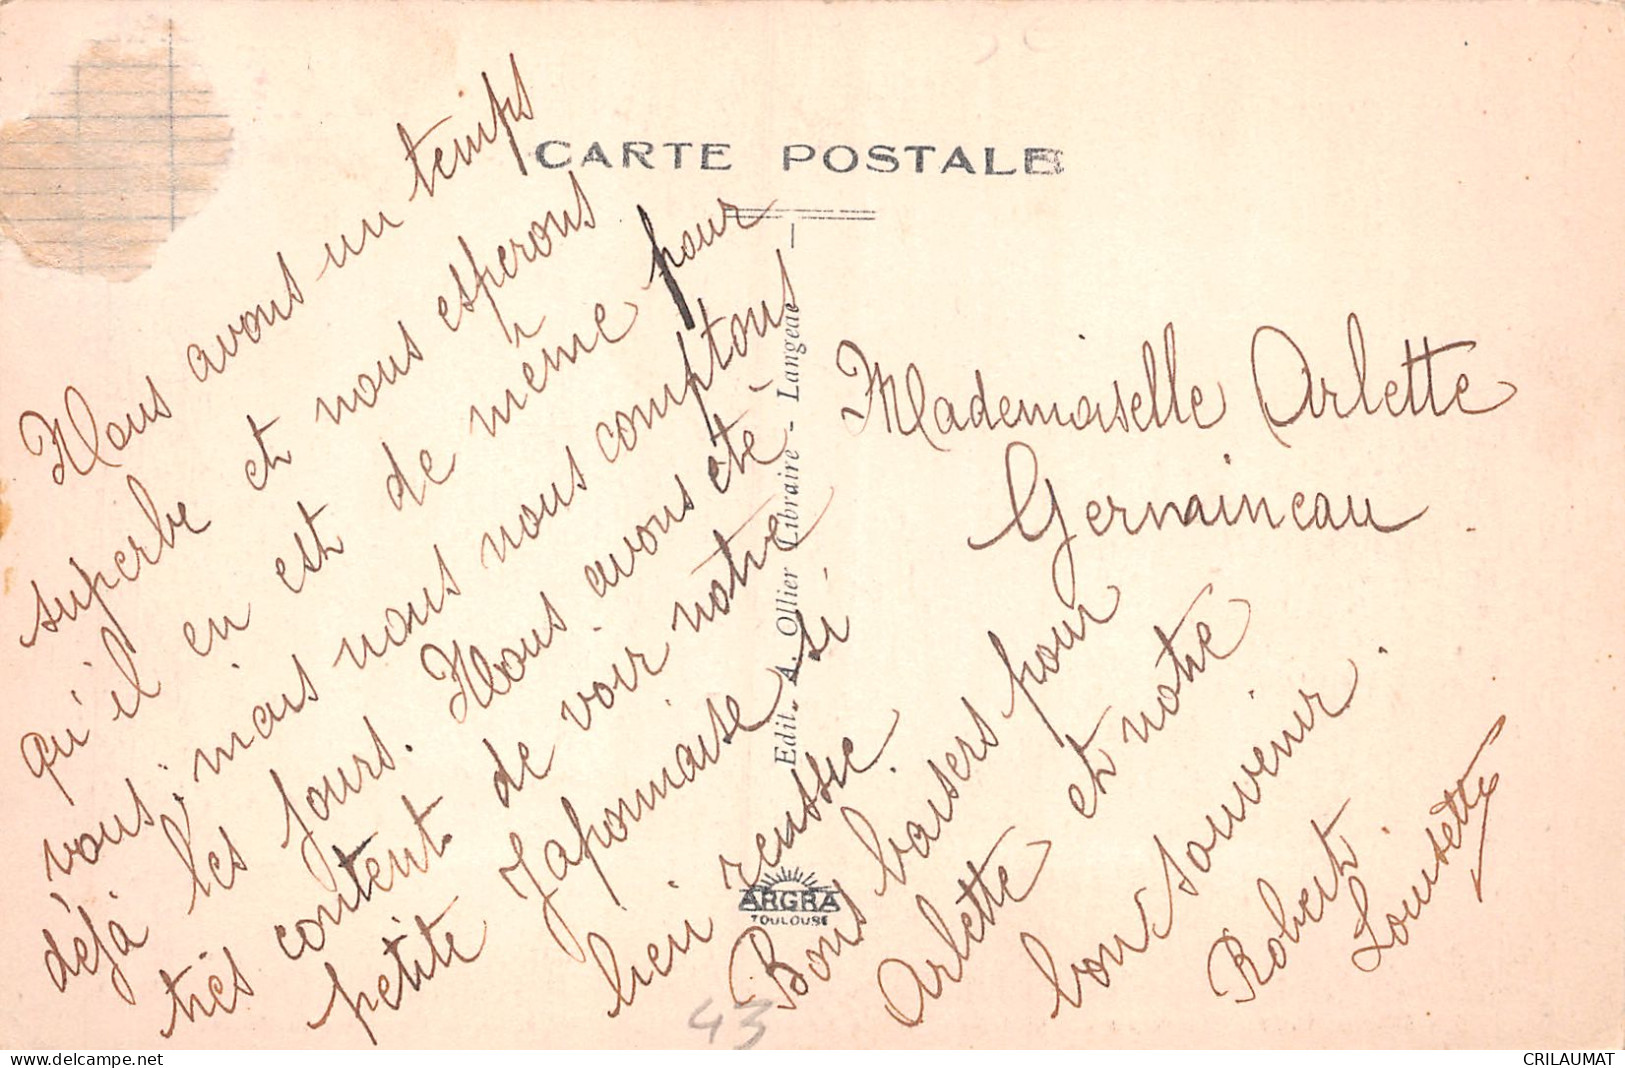 CARTE POSTALE
Nous avons un temps
superbe et nous espérons
qu'il en est de même pour
vous, mais nous nous comptons
déjà les jours. Nous avons été
très content de voir notre
petite Japonnaise si
bien reussie.
Bons baisers pour
Arlette et notre
bon souvenir.
Robert
Lousette
Mademoiselle Arlette
Germaineau
Edit. A. Ollier Libraire - Langeac
ARGRA
TOULOUSE
43
delcampe.net
CRILAUMAT